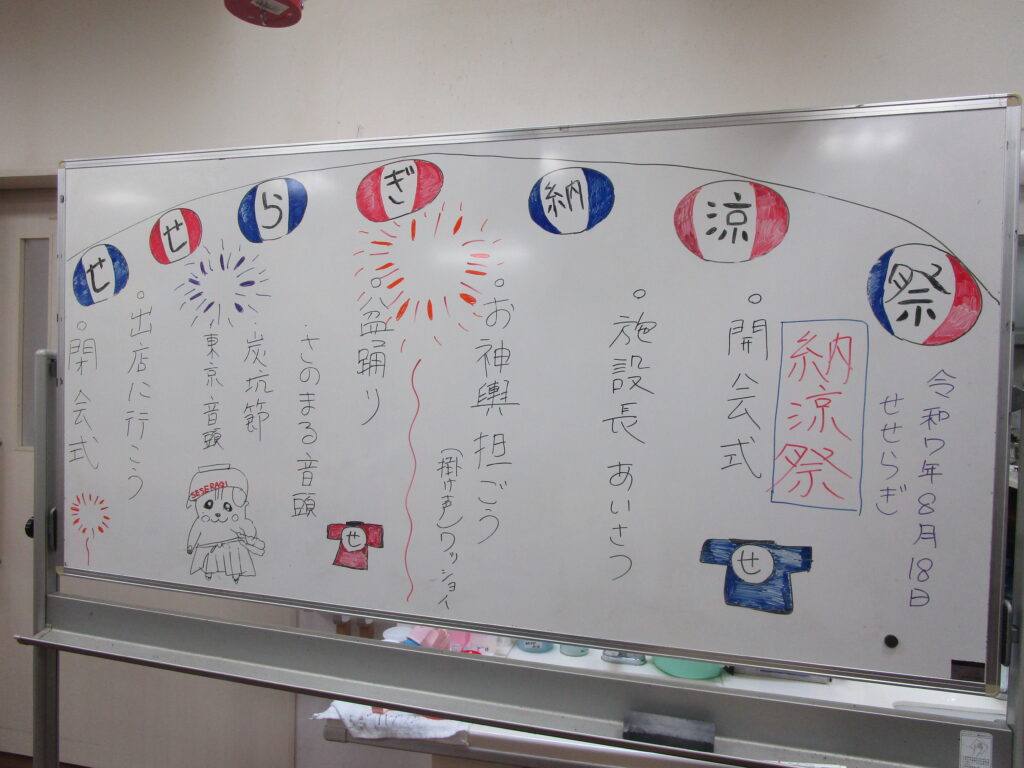 せせらぎ納涼祭
令和7年8月18日
せせらぎ
納涼祭
。開会式
。施設長 あいさつ
。お神輿担ごう
(掛け声)ワッショイ
。盆踊り
・さのまる音頭
炭坑節
東京音頭
。出店に行こう
。閉会式
SESERAGI
せ
せ